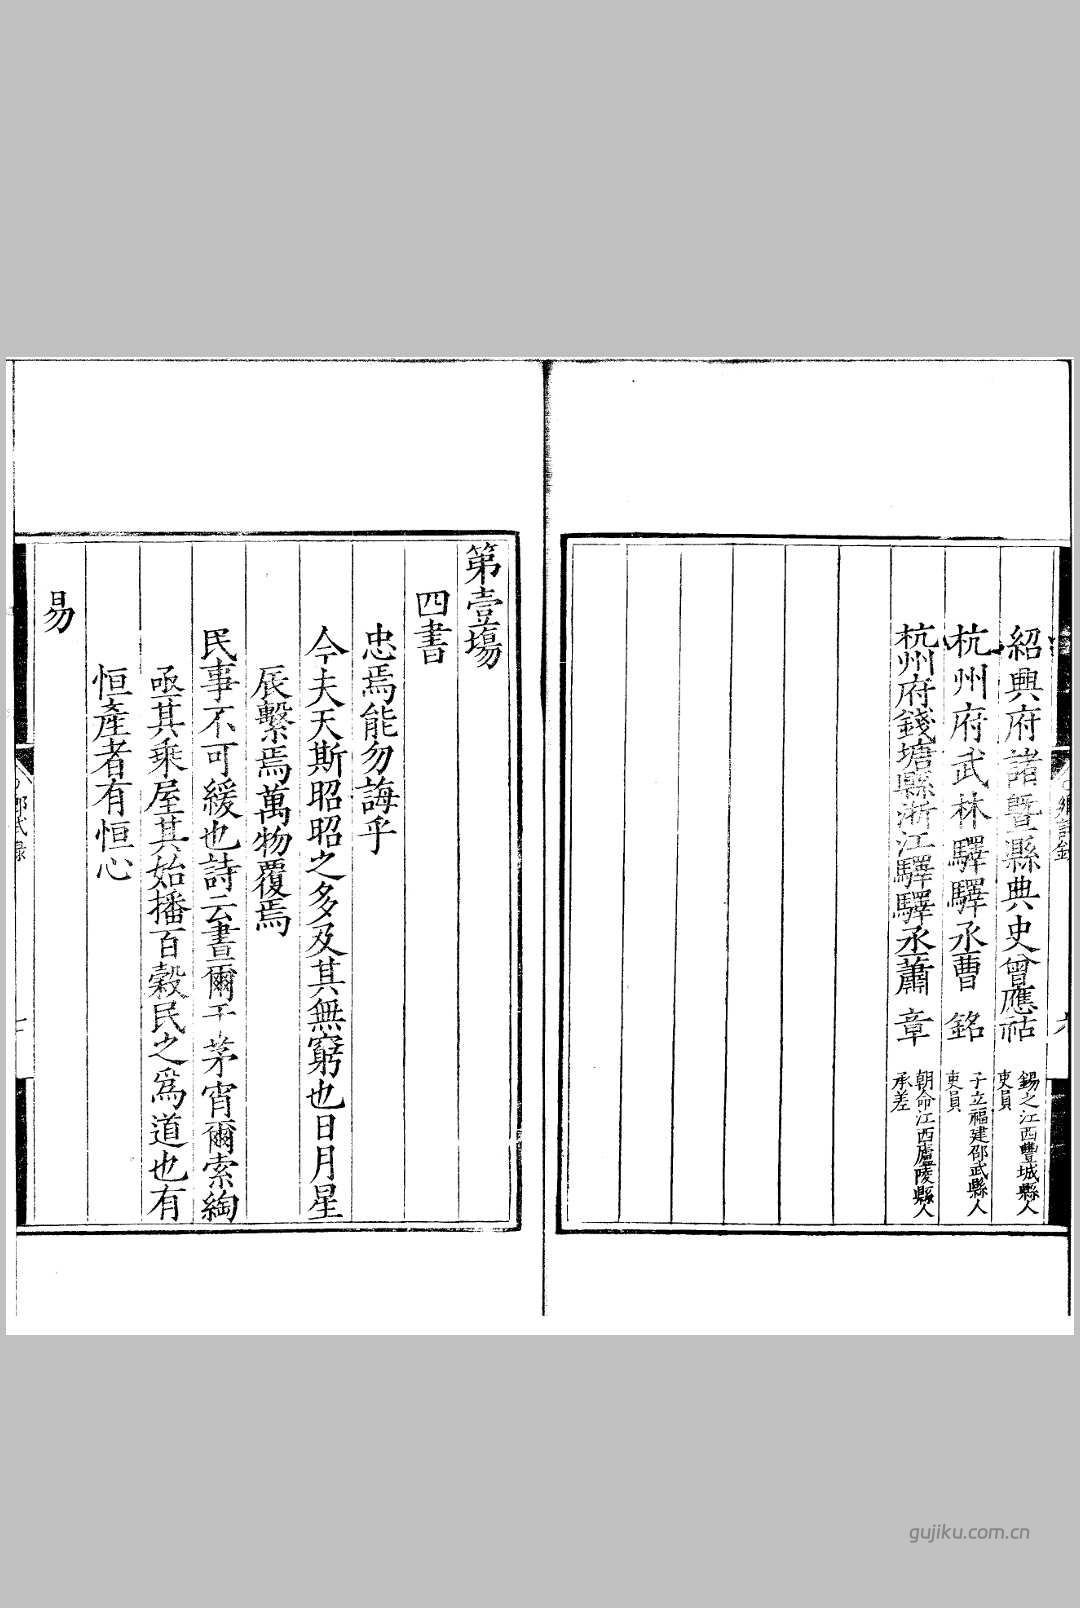 紹興府諸暨縣典史曾應祜 錫之江西豐城縣人吏員
杭州府武林驛驛丞曹 銘 子立福建邵武縣人吏員
杭州府錢塘縣浙江驛驛丞蕭 章 朝命江西廬陵縣人承差
第壹塲
四書
忠焉能勿誨乎
今夫天斯昭昭之多及其無窮也日月星
辰繫焉萬物覆焉
民事不可緩也詩云晝爾于茅宵爾索綯
亟其乘屋其始播百穀民之爲道也有
恒產者有恒心
易
gujiku.com.cn